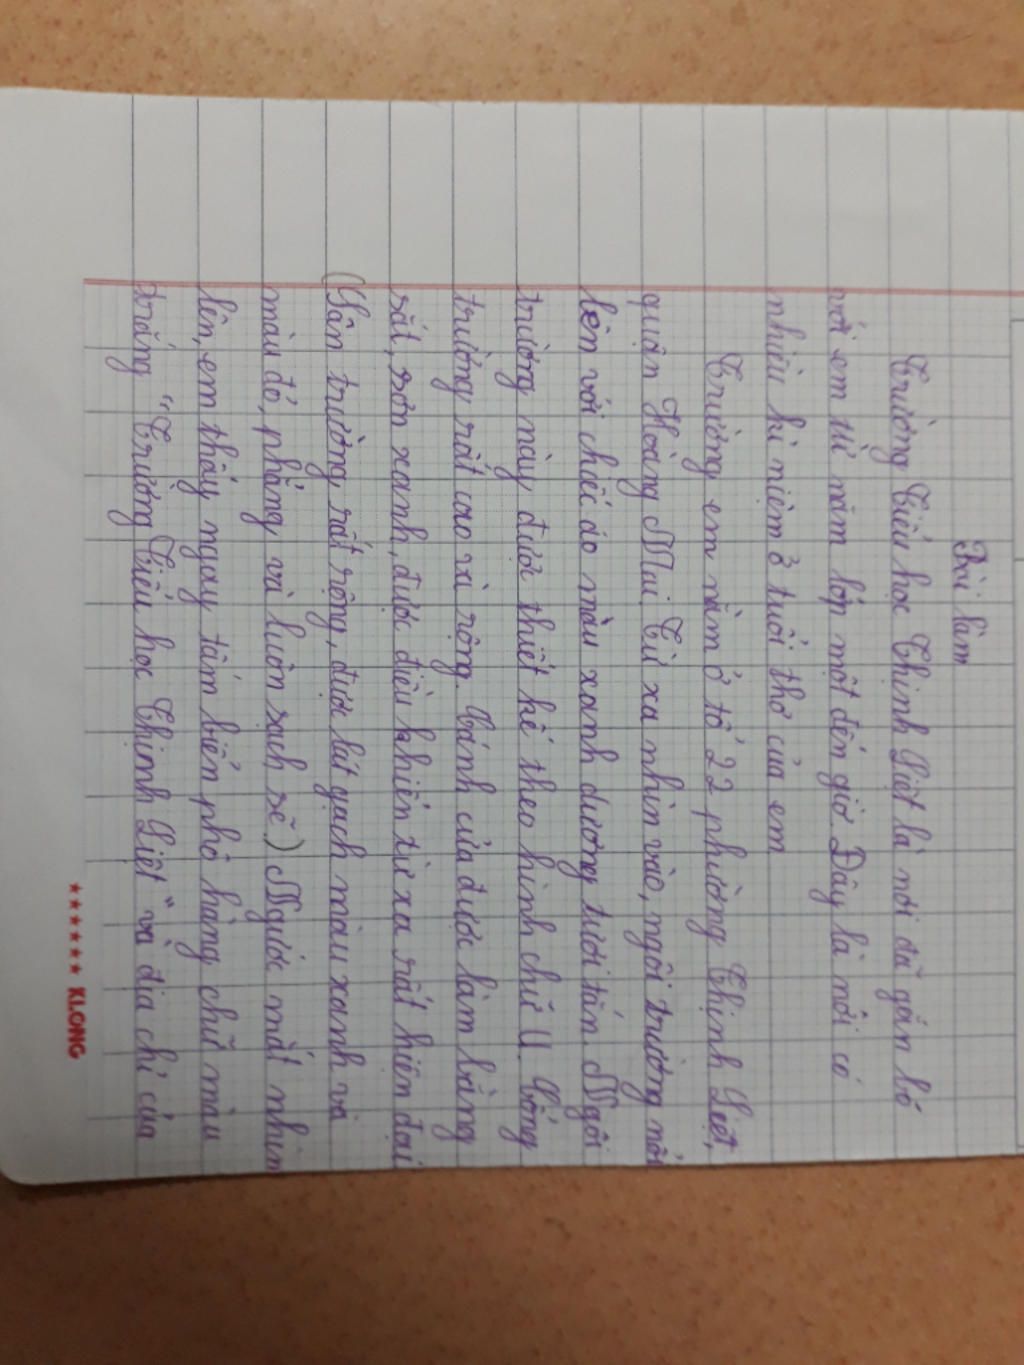 Bài làm
Trường Tiểu học Thịnh Liệt là nơi đã gắn bó
với em từ năm lớp một đến giờ. Đây là nơi có
nhiều kỉ niệm ở tuổi thơ của em
Trường em nằm ở tổ 22 phường Thịnh Liệt,
quận Hoàng Mai. Từ xa nhìn vào, ngôi trường nổi
lên với chiếc áo màu xanh dương tươi tắn. Ngôi
trường này được thiết kế theo hình chữ U. Cổng
trường rất cao và rộng. Cánh cửa được làm bằng
sắt, sơn xanh, được điều khiển từ xa rất hiện đại
(Sân trường rất rộng, được lát gạch màu xanh và
màu đỏ, phẳng và luôn sạch sẽ) Ngước mắt nhìn
lên, em thấy ngay tấm biển phô hàng chữ màu
trắng "Trường Tiểu học Thịnh Liệt" và địa chỉ của
★★★★★★ KLONG